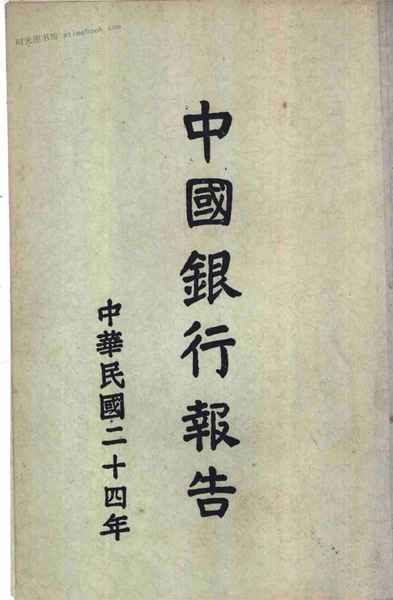 时光图书馆 etimebook.com
中國銀行報告
中華民國二十四年